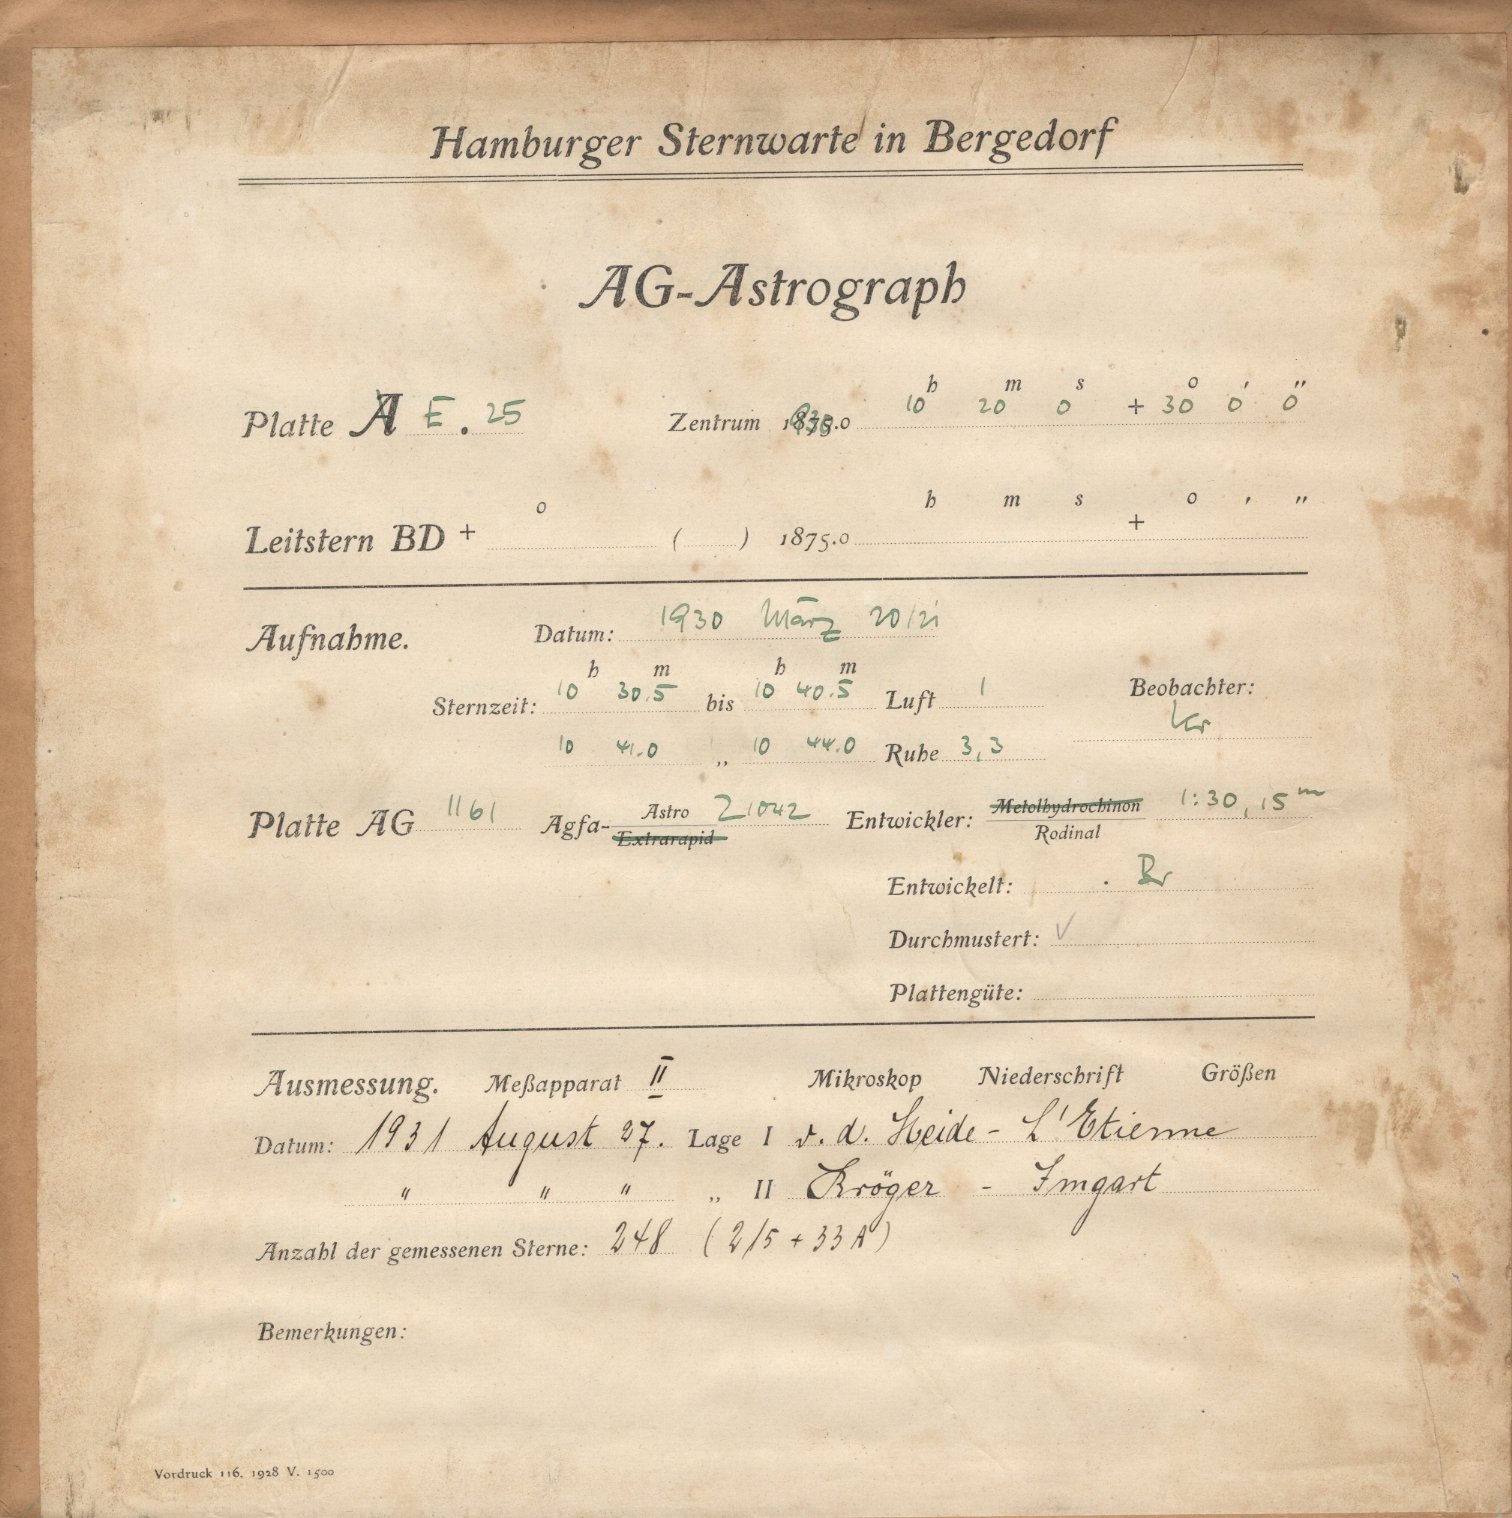 Hamburger Sternwarte in Bergedorf
AG-Astrograph
h m s o ' "
Platte A E. 25 Zentrum 1875.0 10 20 0 + 30 0 0
o h m s o ' "
Leitstern BD + ( ) 1875.0 +
Aufnahme. Datum: 1930 März 20/21
h m h m
Sternzeit: 10 30.5 bis 10 40.5 Luft 1 Beobachter:
Kr
10 41.0 „ 10 44.0 Ruhe 3,3
Platte AG 1161 Agfa- Astro Z 1042 Entwickler: Metolhydrochinon 1:30, 15 m
Extrarapid Rodinal
Entwickelt: Br
Durchmustert: √
Plattengüte:
Ausmessung. Meßapparat II Mikroskop Niederschrift Größen
Datum: 1931 August 27. Lage I v. d. Heide - L'Etienne
" " " „ II Kröger - Imgart
Anzahl der gemessenen Sterne: 248 (215 + 33 A)
Bemerkungen:
Vordruck 116. 1928 V. 1500